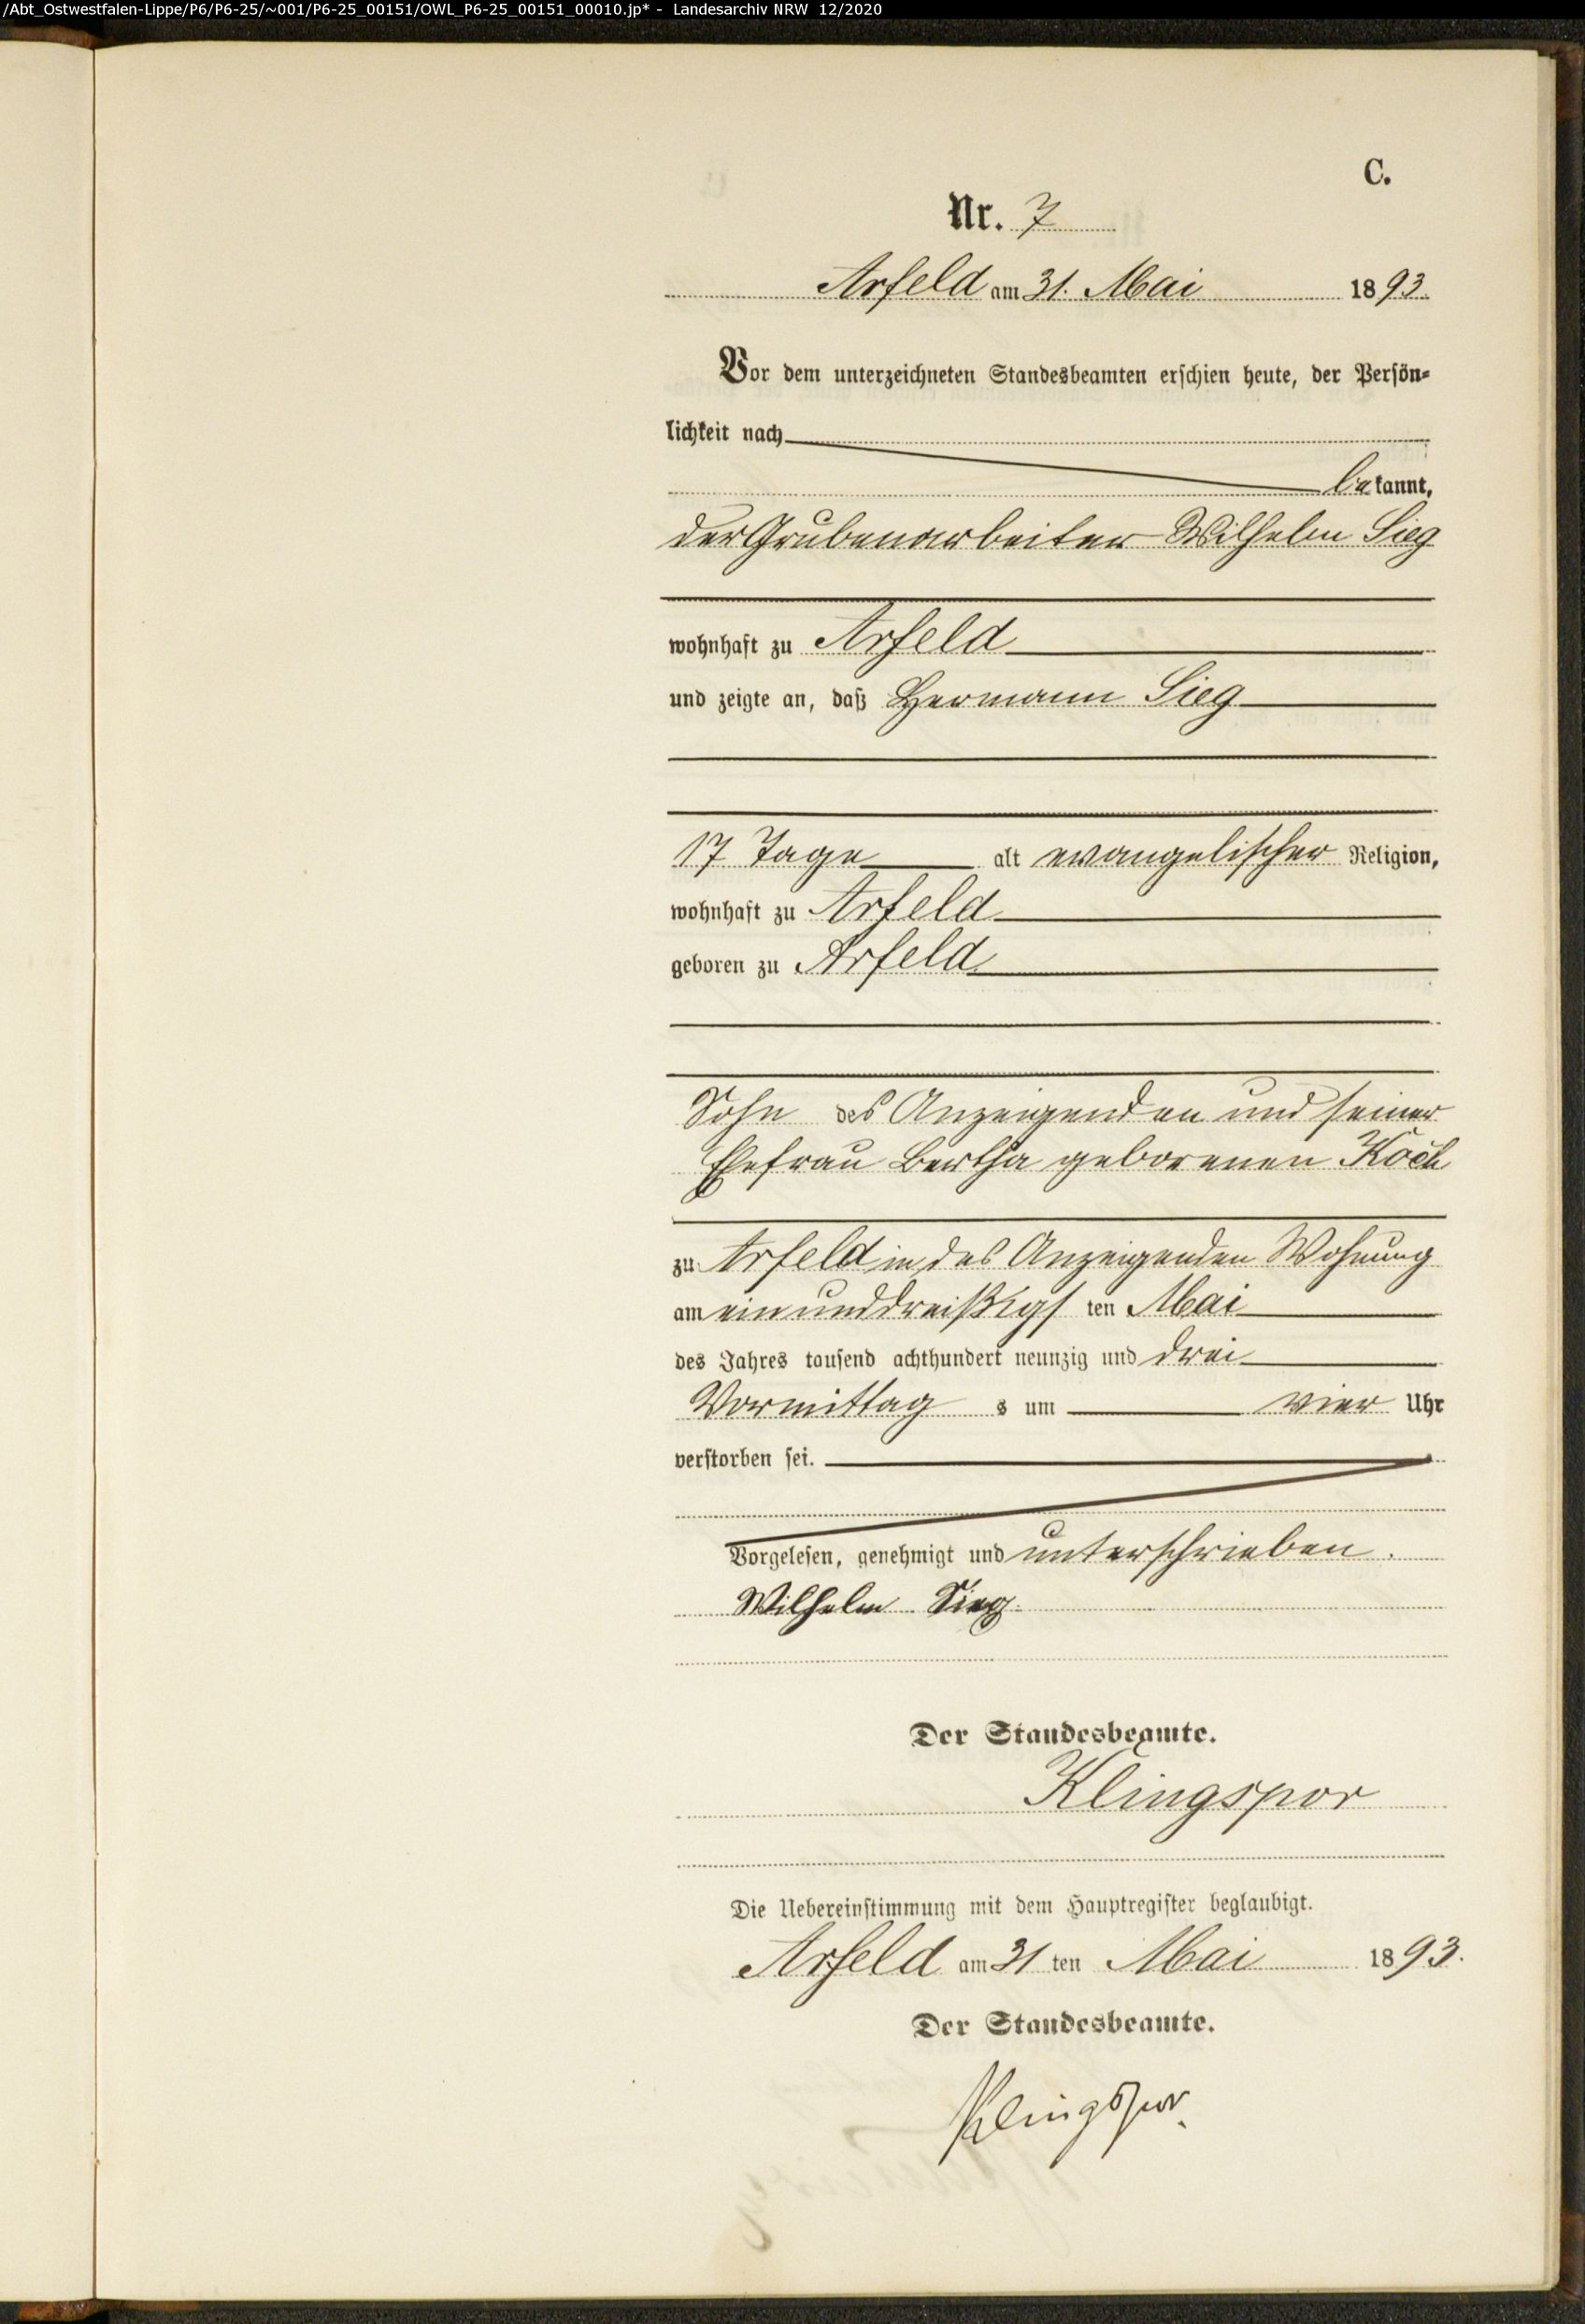 /Abt_Ostwestfalen-Lippe/P6/P6-25/~001/P6-25_00151/OWL_P6-25_00151_00010.jp* - Landesarchiv NRW 12/2020
C.
Nr. 7
Arfeld am 31. Mai 1893.
Vor dem unterzeichneten Standesbeamten erschien heute, der Persön-
lichkeit nach
bekannt,
der Grubenarbeiter Wilhelm Sieg
wohnhaft zu Arfeld
und zeigte an, daß Hermann Sieg
17 Tage alt evangelischer Religion,
wohnhaft zu Arfeld
geboren zu Arfeld
Sohn des Anzeigenden und seiner
Ehefrau Bertha geborenen Koch
zu Arfeld in des Anzeigenden Wohnung
am einunddreißigsten Mai
des Jahres tausend achthundert neunzig und drei
Vormittags um vier Uhr
verstorben sei.
Vorgelesen, genehmigt und unterschrieben.
Wilhelm Sieg
Der Standesbeamte.
Klingspor
Die Uebereinstimmung mit dem Hauptregister beglaubigt.
Arfeld am 31ten Mai 1893.
Der Standesbeamte.
Klingspor.